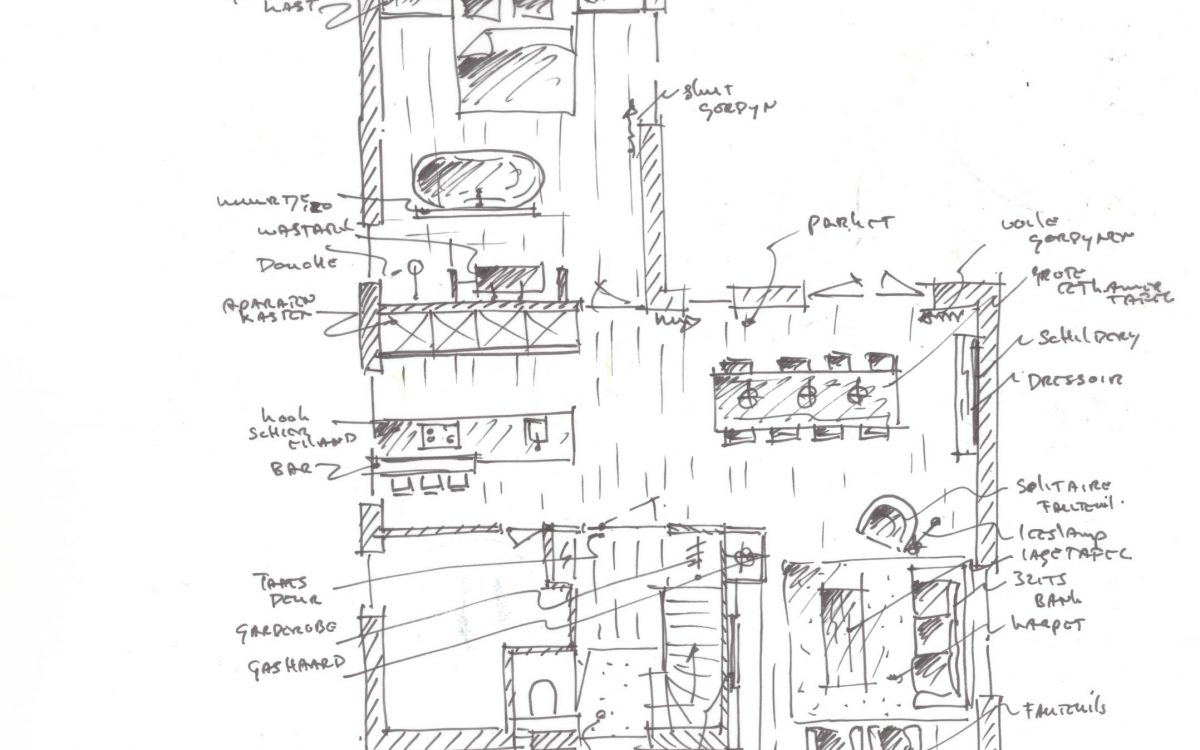 KAST
SLUIT
GORDYN
MUURTJE
WASTAFEL
DOUCHE
APARATEN
KASTEN
PARKET
VOILE
GORDYNEN
GROTE
EETKAMER
TAFEL
SCHILDERY
DRESSOIR
KOOK
SCHIER
EILAND
BAR
SOLITAIRE
FAUTEUIL.
LEESLAMP
LAGE TAFEL
3ZITS
BANK
KARPET
TAATS
DEUR
GARDEROBE
GASHAARD
FAUTEUILS